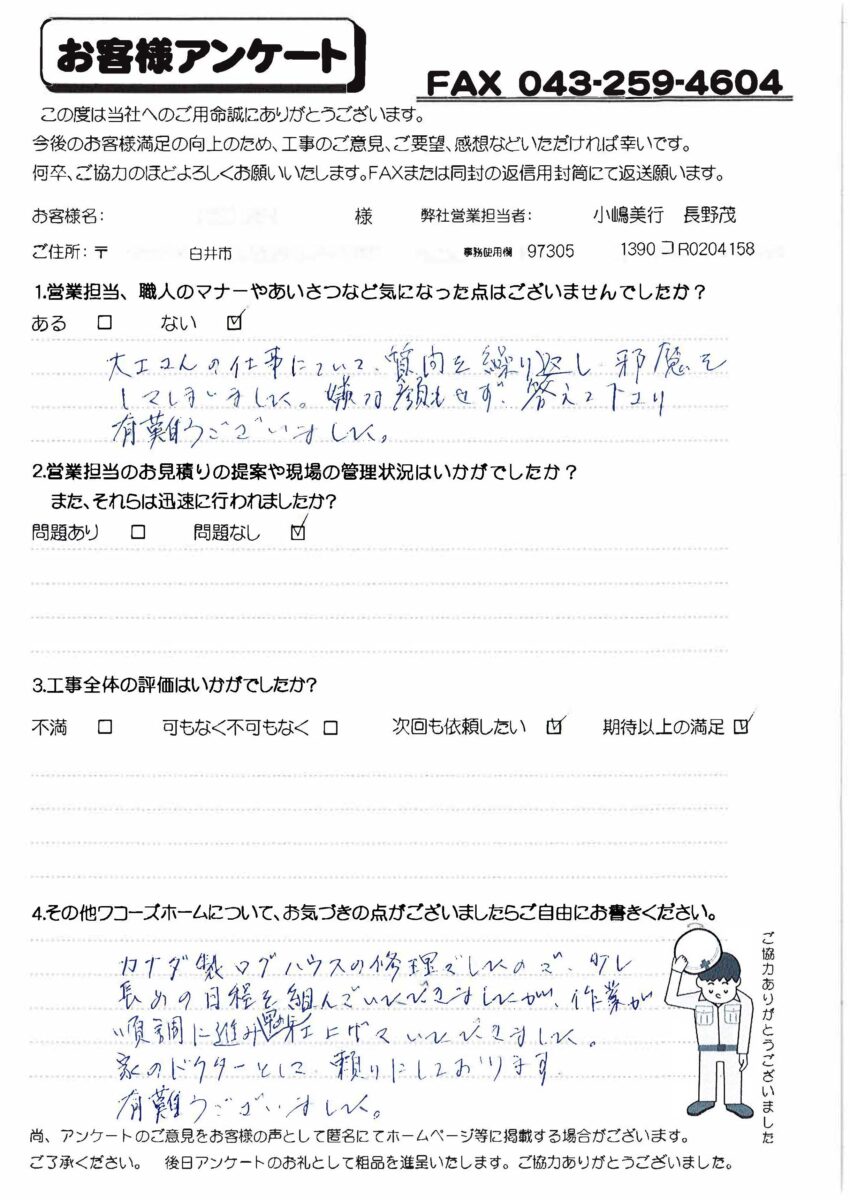 お客様アンケート
FAX 043-259-4604
この度は当社へのご用命誠にありがとうございます。
今後のお客様満足の向上のため、工事のご意見、ご要望、感想などいただければ幸いです。
何卒、ご協力のほどよろしくお願いいたします。FAXまたは同封の返信用封筒にて返送願います。
お客様名: 様 弊社営業担当者: 小嶋美行 長野茂
ご住所:〒 白井市 事務使用欄 97305 1390コR0204158
1.営業担当、職人のマナーやあいさつなど気になった点はございませんでしたか?
ある □ ない ☑
大工さんの仕事について、質問を繰り返し邪魔を
してしまいました。嫌な顔もせず、答えて下さり
有難うございました。
2.営業担当のお見積りの提案や現場の管理状況はいかがでしたか?
また、それらは迅速に行われましたか?
問題あり □ 問題なし ☑
3.工事全体の評価はいかがでしたか?
不満 □ 可もなく不可もなく □ 次回も依頼したい ☑ 期待以上の満足 ☑
4.その他ワコーズホームについて、お気づきの点がございましたらご自由にお書きください。
カナダ製ログハウスの修理でしたので、少し
長めの日程を組んでいただきましたが、作業が
順調に進み 上げていただきました。
家のドクターとして、頼りにしております。
有難うございました。
ご協力ありがとうございました
尚、アンケートのご意見をお客様の声として匿名にてホームページ等に掲載する場合がございます。
ご了承ください。 後日アンケートのお礼として粗品を進呈いたします。ご協力ありがとうございました。